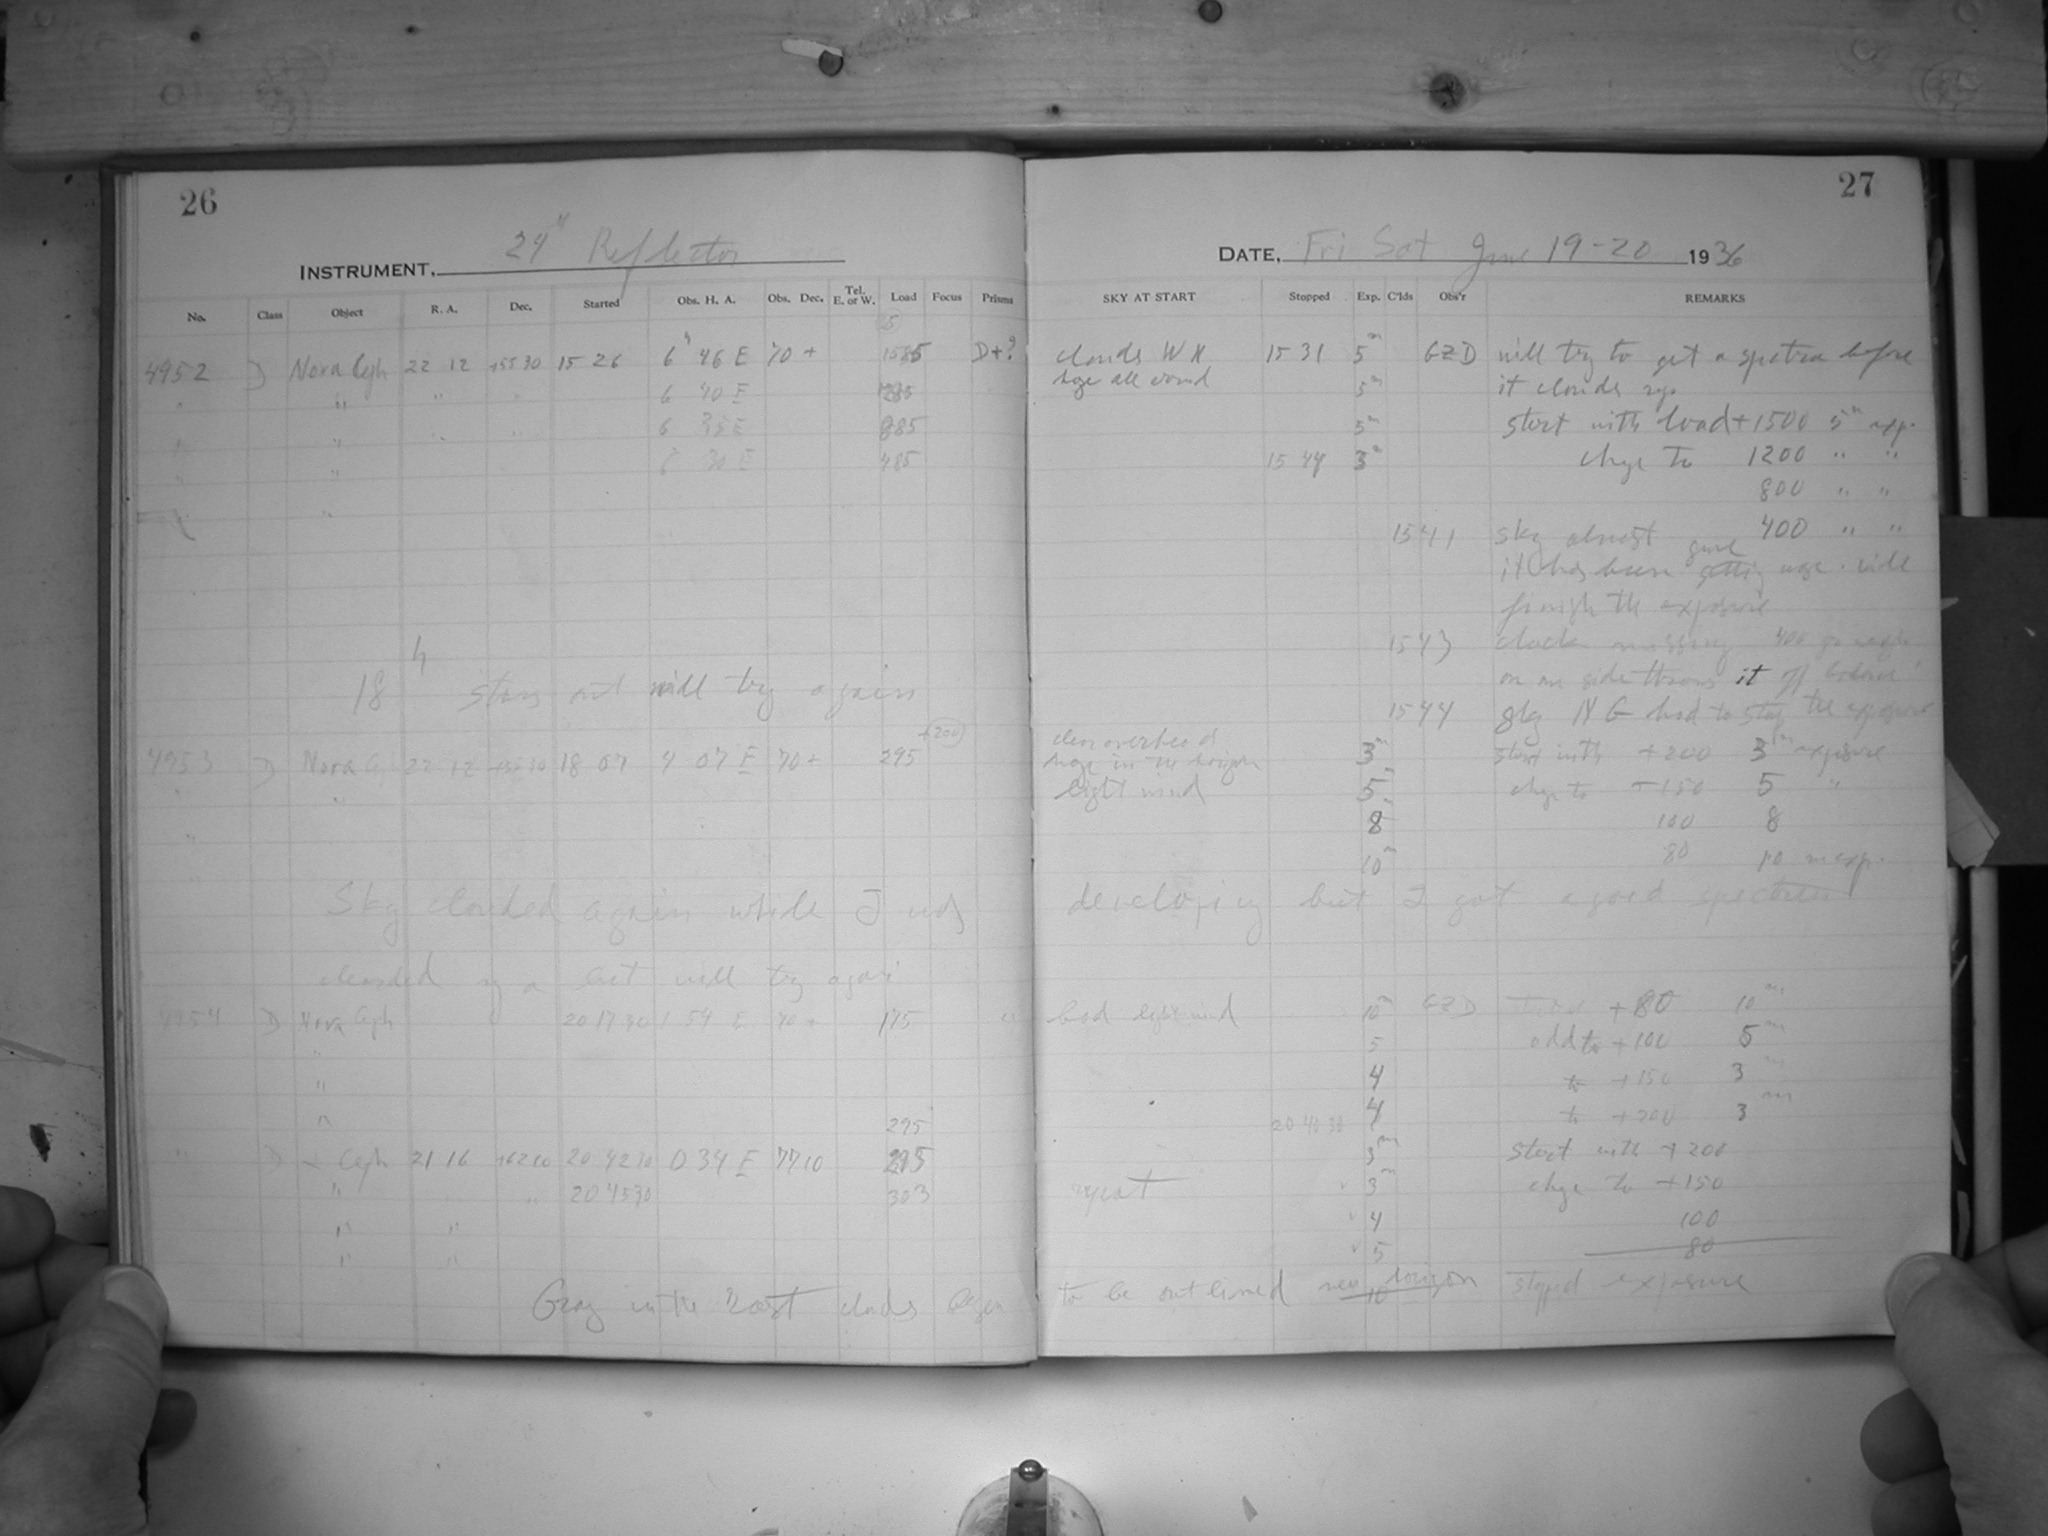 26
INSTRUMENT, 24" Reflector
No. Class Object R. A. Dec. Started Obs. H. A. Obs. Dec. Tel. E. or W. Load Focus Prisms
4952 D Nova Ceph 22 12 +55 30 15 26 6h 46 E 70 + 1585 D+?
" " " " 6 40 E 1285
" " " " 6 35 E 885
" " 6 30 E 485
" "
18h stars out will try again
+200
4953 D Nova C 22 12 +55 30 18 07 4 07 E 70 + 295
" "
"
Sky clouded again while I was
clearded a bit will try again
4954 D Nova Ceph 20 17 30 1 54 E 70 + 175 "
"
"
" 295
" D Ceph 21 16 +62 10 20 42 30 0 34 E 77 10 295
" " 20 45 30 303
" "
" "
Gray in the East clouds began
27
DATE, Fri Sat June 19-20 1936
SKY AT START Stopped Exp. C'lds Obs'r REMARKS
clouds W N 15 31 5m GZD will try to get a spectra before
haze all around 5m it clouds up
5m start with load +1500 5m exp.
15 44 3m chge to 1200 " "
800 " "
400 " "
15 41 sky almost gone
it has been getting worse. will
finish the exposure
15 43 clock missing 400
on one side throws it off balance
15 44 sky N G had to stop the exposure
clear overhead 3m start with +200 3m exposure
haze in the horizon
light wind 5 chge to +150 5 "
8 100 8
10m 80 10 m exp.
developing but I got a good spectrum
bad light wind 10m GZD +80 10m
5 add to +100 5m
4 to +150 3m
20 40 30 4 to +200 3m
3m start with +200
repeat 3m chge to +150
4 100
5 80
to be outlined near horizon stopped exposure
10